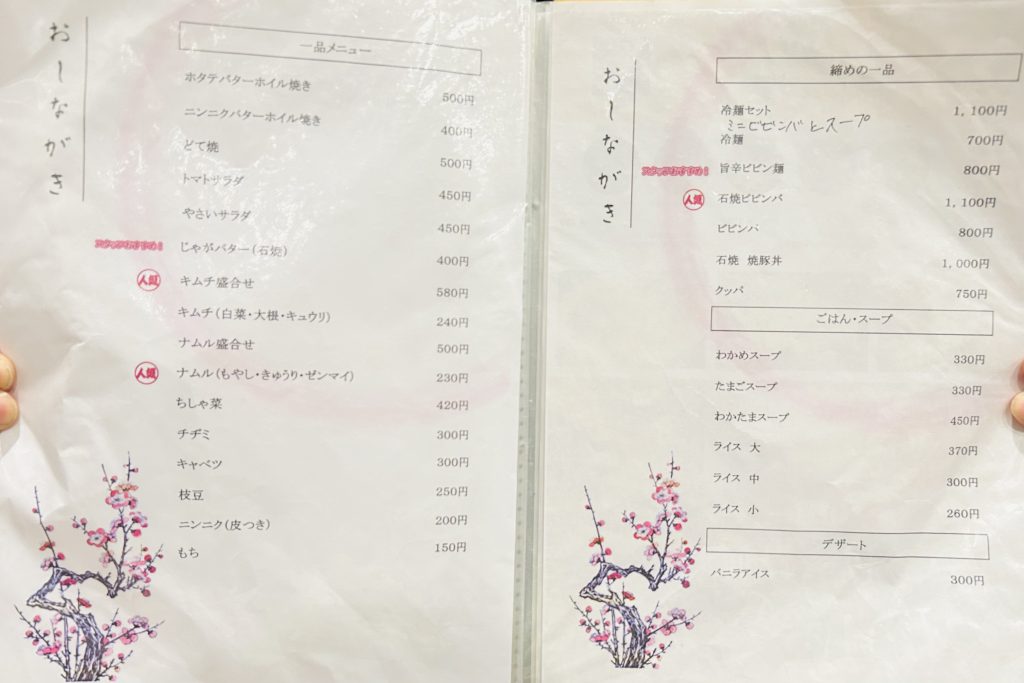 おしながき
一品メニュー
ホタテバターホイル焼き 500円
ニンニクバターホイル焼き 400円
どて焼 500円
トマトサラダ 450円
やさいサラダ 450円
スタッフおすすめ！ じゃがバター（石焼） 400円
人気 キムチ盛合せ 580円
キムチ（白菜・大根・キュウリ） 240円
ナムル盛合せ 500円
人気 ナムル（もやし・きゅうり・ゼンマイ） 230円
ちしゃ菜 420円
チヂミ 300円
キャベツ 300円
枝豆 250円
ニンニク（皮つき） 200円
もち 150円
おしながき
締めの一品
冷麺セット 1,100円
ミニビビンバとスープ
冷麺 700円
スタッフおすすめ！ 旨辛ビビン麺 800円
人気 石焼ビビンバ 1,100円
ビビンバ 800円
石焼 焼豚丼 1,000円
クッパ 750円
ごはん・スープ
わかめスープ 330円
たまごスープ 330円
わかたまスープ 450円
ライス 大 370円
ライス 中 300円
ライス 小 260円
デザート
バニラアイス 300円